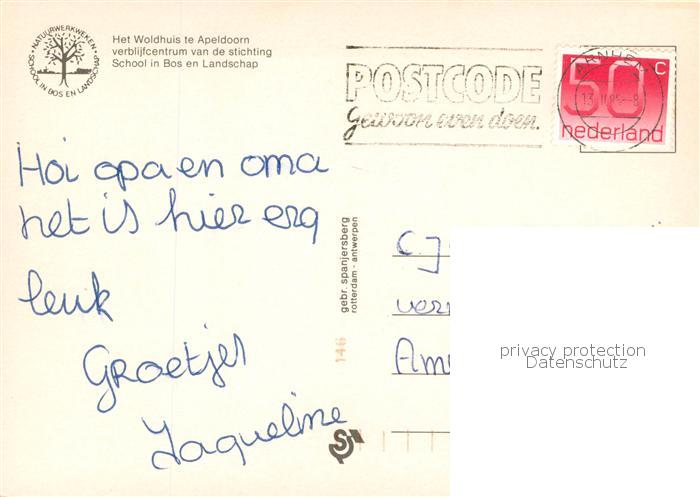 NATUURWERKWEKEN
SCHOOL IN BOS EN LANDSCHAP
Het Woldhuis te Apeldoorn
verblijfcentrum van de stichting
School in Bos en Landschap
POSTCODE
Gewoon even doen.
ARNHEM
50 C
nederland
Hoi opa en oma
het is hier erg
leuk
Groetjes
Jaqueline
gebr. spanjersberg
rotterdam - antwerpen
146
privacy protection
Datenschutz